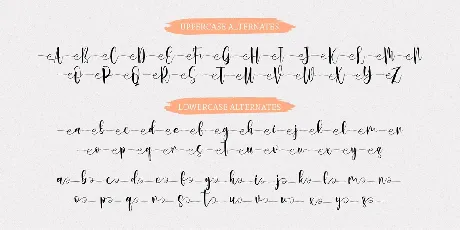 UPPERCASE ALTERNATES
A B C D E F G H I J K L M N
O P Q R S T U V W X Y Z
LOWERCASE ALTERNATES
a b c d e f g h i j k l m n
o p q r s t u v w x y z
a b c d e f g h i j k l m n
o p q r s t u v w x y z